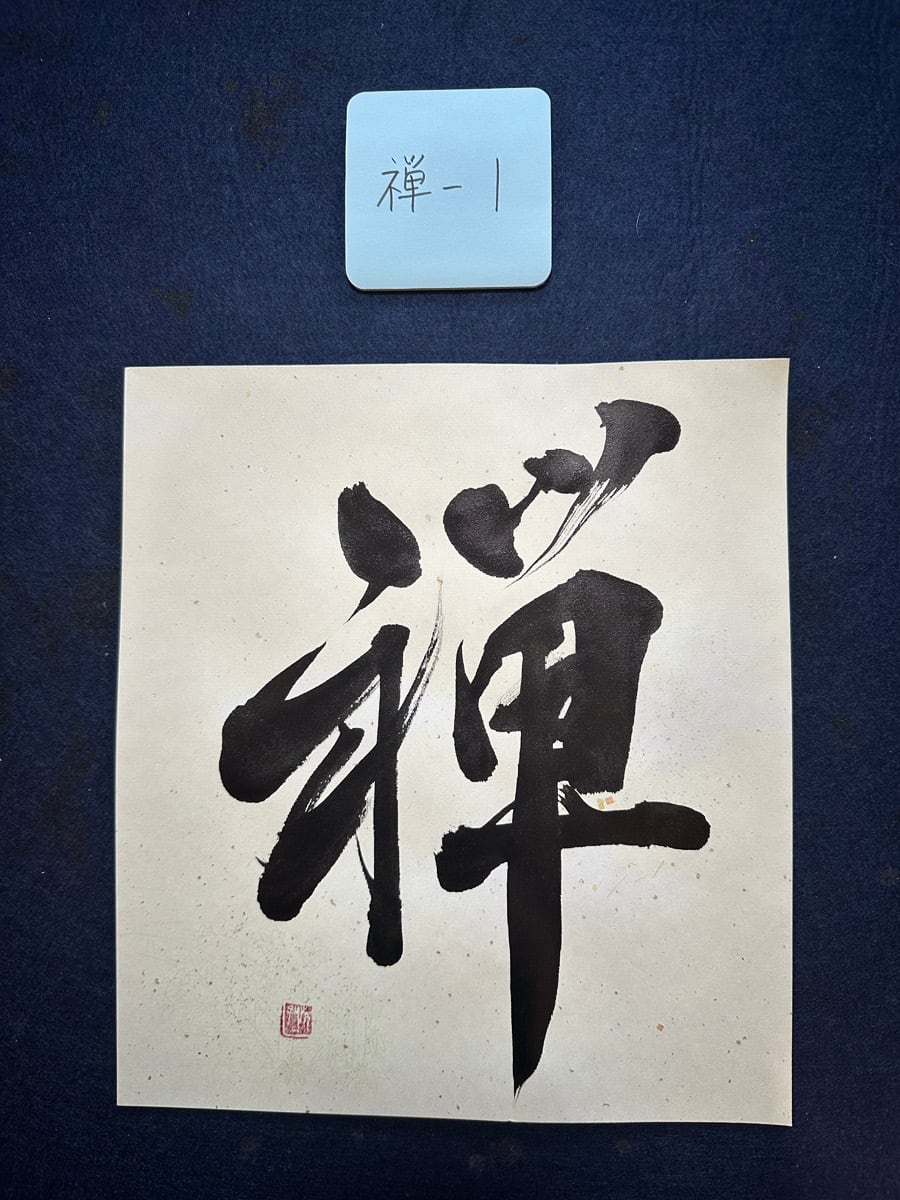 禅-1
禅